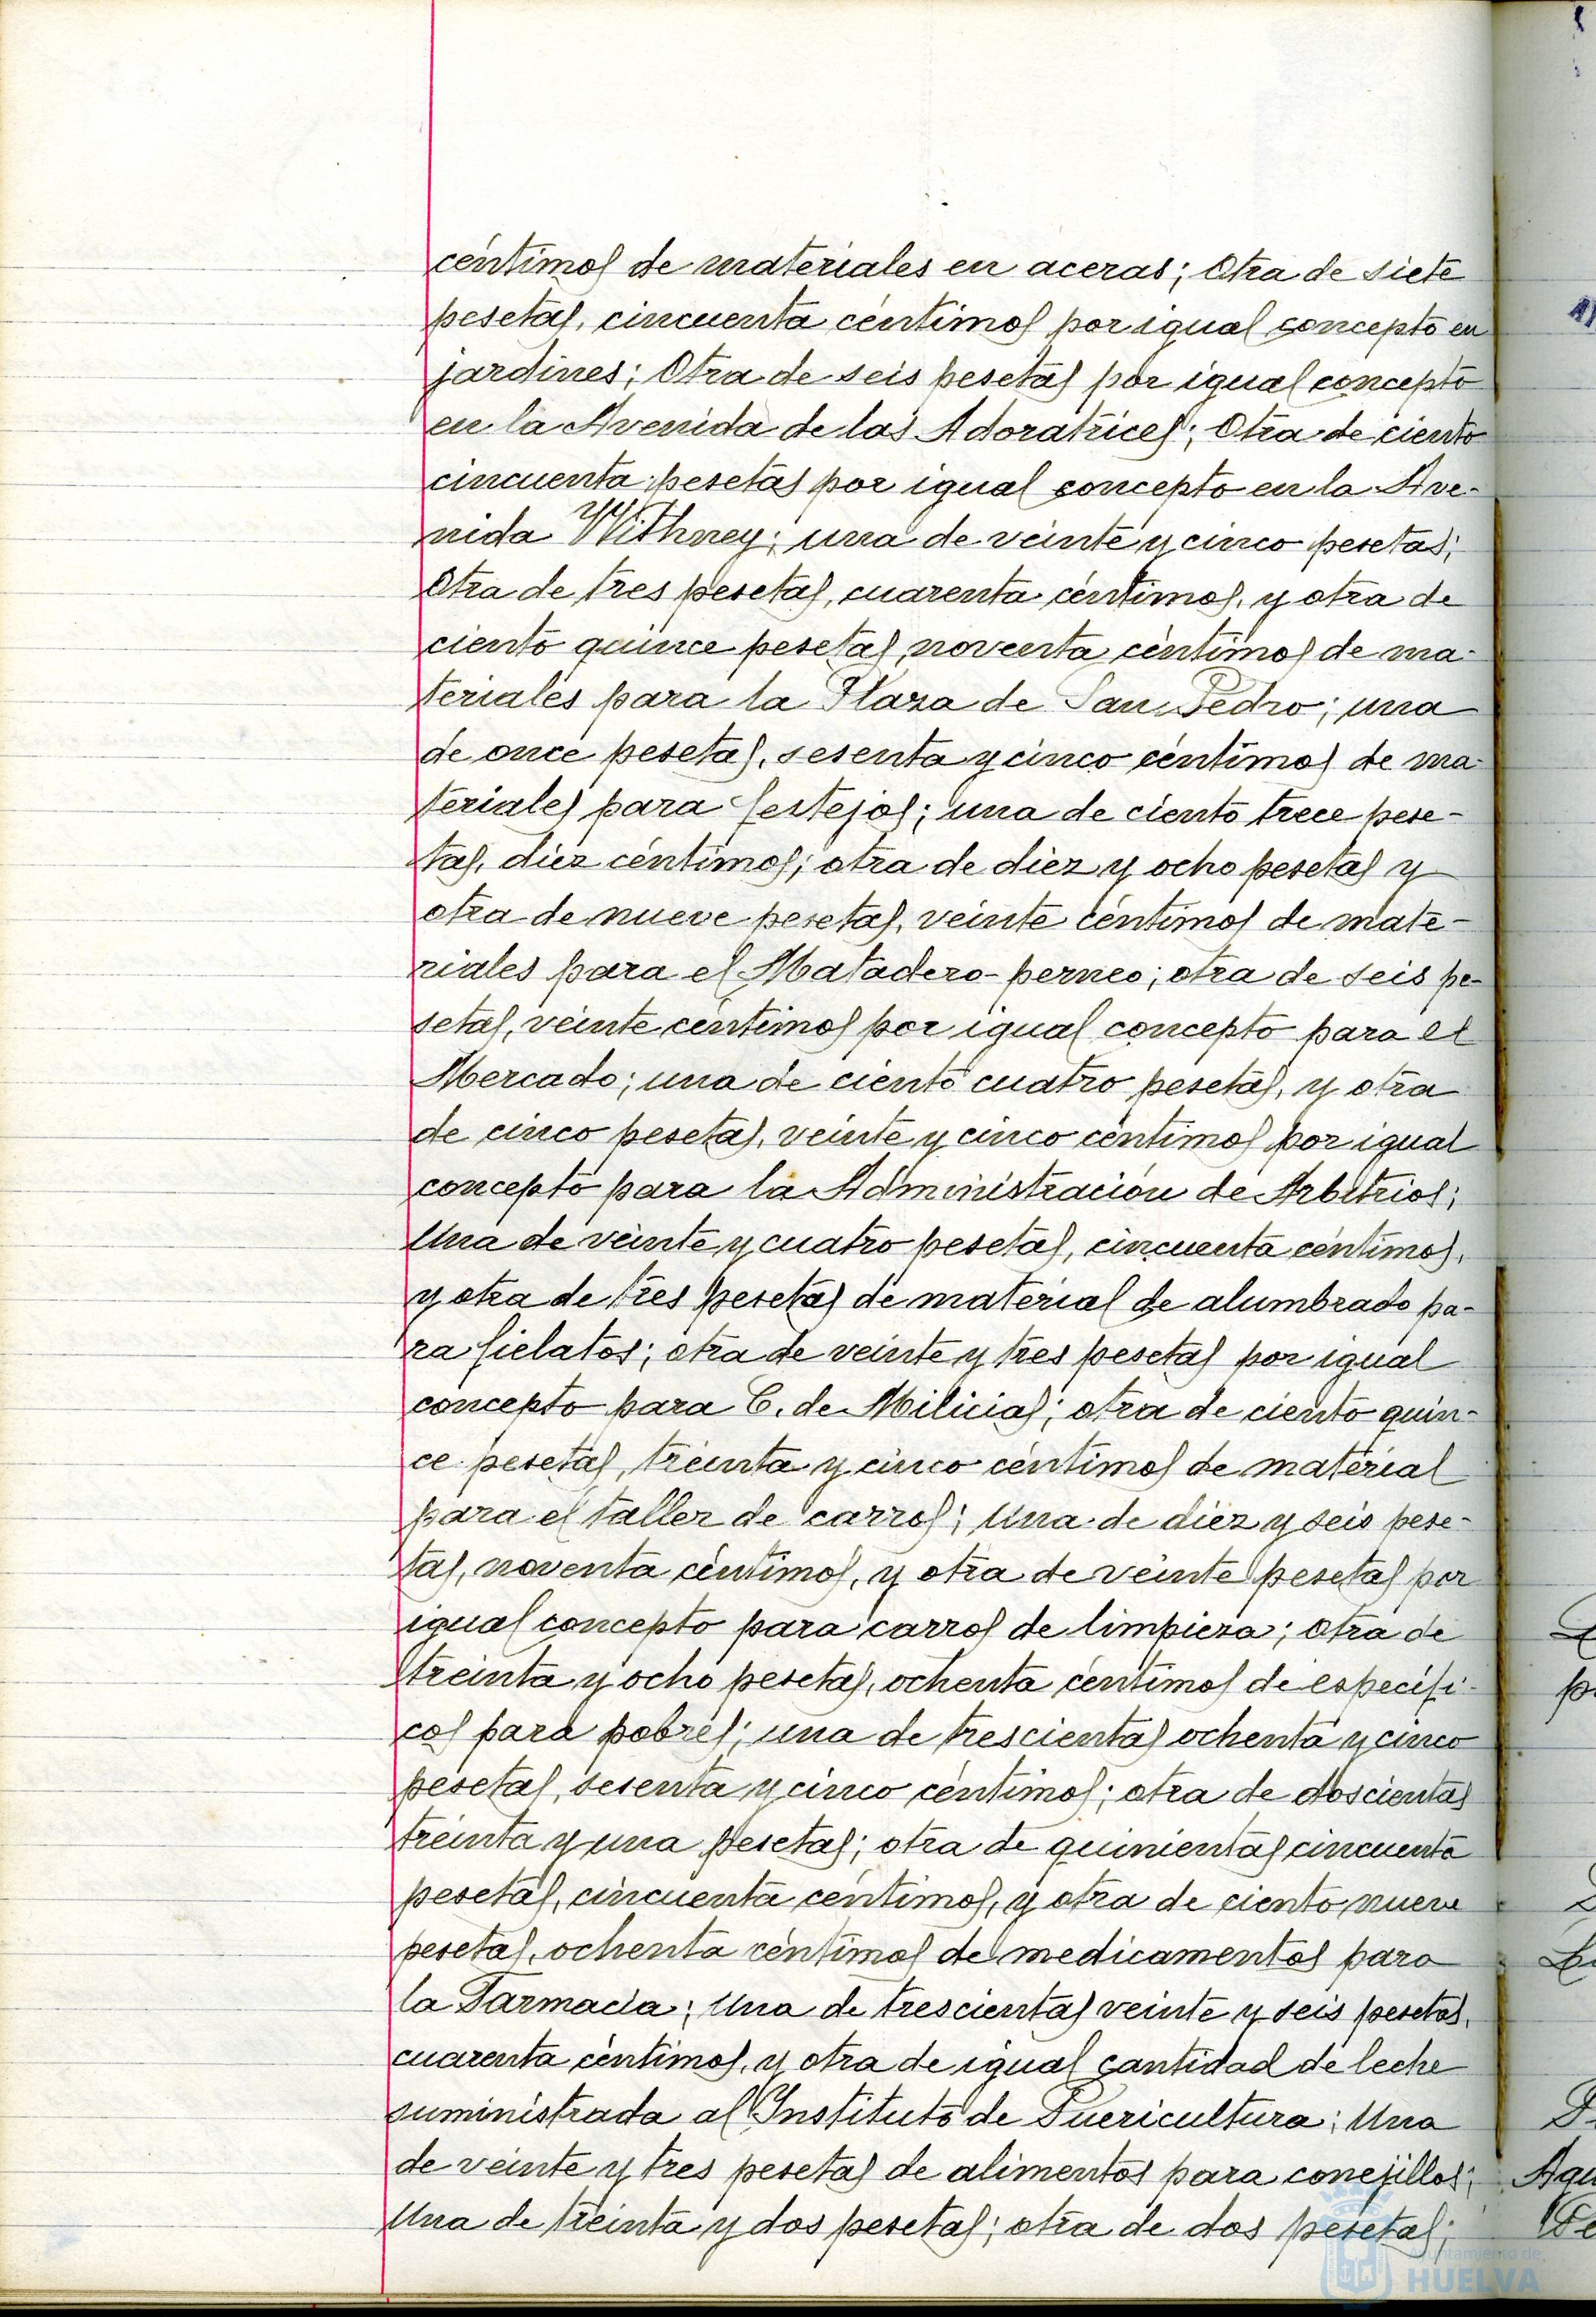 céntimos de materiales en aceras; Otra de siete
pesetas, cincuenta céntimos por igual concepto en
jardines; Otra de seis pesetas por igual concepto
en la Avenida de las Adoratrices; Otra de ciento
cincuenta pesetas por igual concepto en la Ave-
nida Withney; una de veinte y cinco pesetas;
Otra de tres pesetas, cuarenta céntimos, y otra de
ciento quince pesetas, noventa céntimos de ma-
teriales para la Plaza de San Pedro; una
de once pesetas, sesenta y cinco céntimos de ma-
teriales para festejos; una de ciento trece pese-
tas, diez céntimos; otra de diez y ocho pesetas y
otra de nueve pesetas, veinte céntimos de mate-
riales para el Matadero-perneo; otra de seis pe-
setas, veinte céntimos por igual concepto para el
Mercado; una de ciento cuatro pesetas, y otra
de cinco pesetas, veinte y cinco céntimos por igual
concepto para la Administración de Arbitrios;
Una de veinte y cuatro pesetas, cincuenta céntimos,
y otra de tres pesetas de material de alumbrado pa-
ra fielatos; otra de veinte y tres pesetas por igual
concepto para C. de Milicias; otra de ciento quin-
ce pesetas, treinta y cinco céntimos de material
para el taller de carros; Una de diez y seis pese-
tas, noventa céntimos, y otra de veinte pesetas por
igual concepto para carros de limpieza; otra de
treinta y ocho pesetas, ochenta céntimos de específi-
cos para pobres; una de trescientas ochenta y cinco
pesetas, sesenta y cinco céntimos; otra de doscientas
treinta y una pesetas; otra de quinientas cincuenta
pesetas, cincuenta céntimos, y otra de ciento nueve
pesetas, ochenta céntimos de medicamentos para
la Farmacia; Una de trescientas veinte y seis pesetas,
cuarenta céntimos, y otra de igual cantidad de leche
suministrada al Instituto de Puericultura; Una
de veinte y tres pesetas de alimentos para conejillos;
Una de treinta y dos pesetas; otra de dos pesetas;
Ayuntamiento de
HUELVA